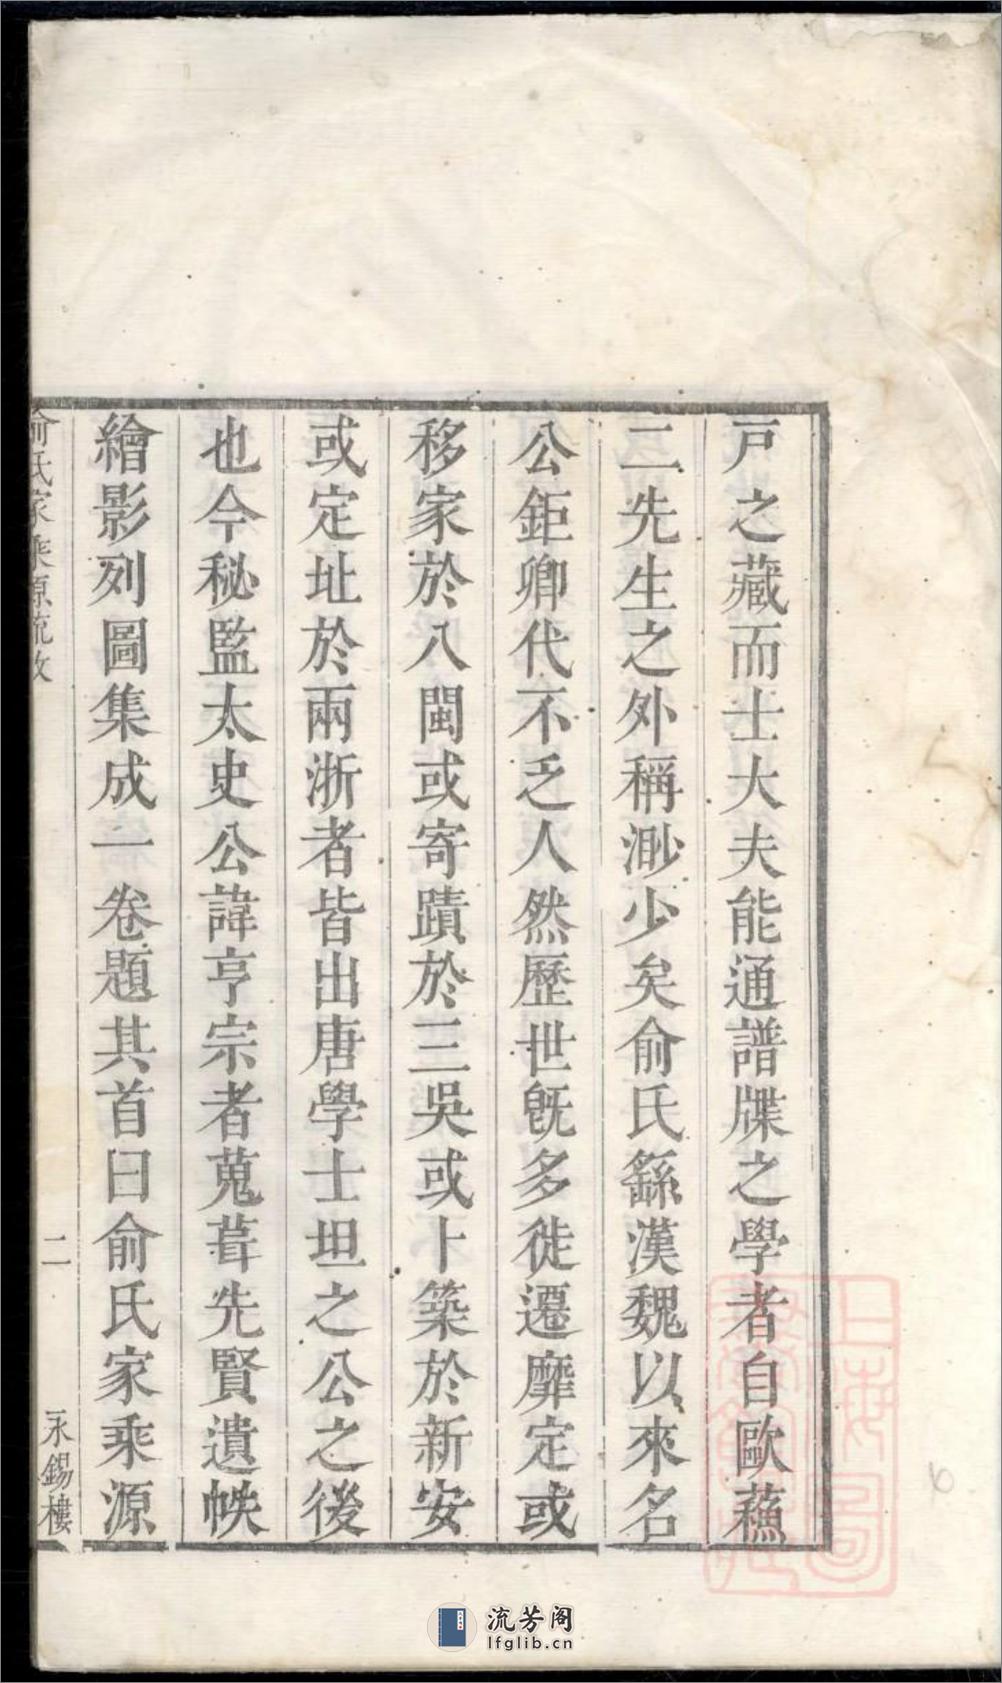 戸之藏而士大夫能通譜牒之學者自歐蘓
二先生之外稱渺少矣俞氏繇漢魏以來名
公鉅卿代不乏人然歷世旣多徙遷靡定或
移家於八閩或寄蹟於三吳或卜築於新安
或定址於兩浙者皆出唐學士坦之公之後
也今秘監太史公諱亨宗者蒐葺先賢遺帙
繪影列圖集成一卷題其首曰俞氏家乘源
俞氏家乘源流攷
二
永錫樓
上海圖
流芳阁
lfglib.cn